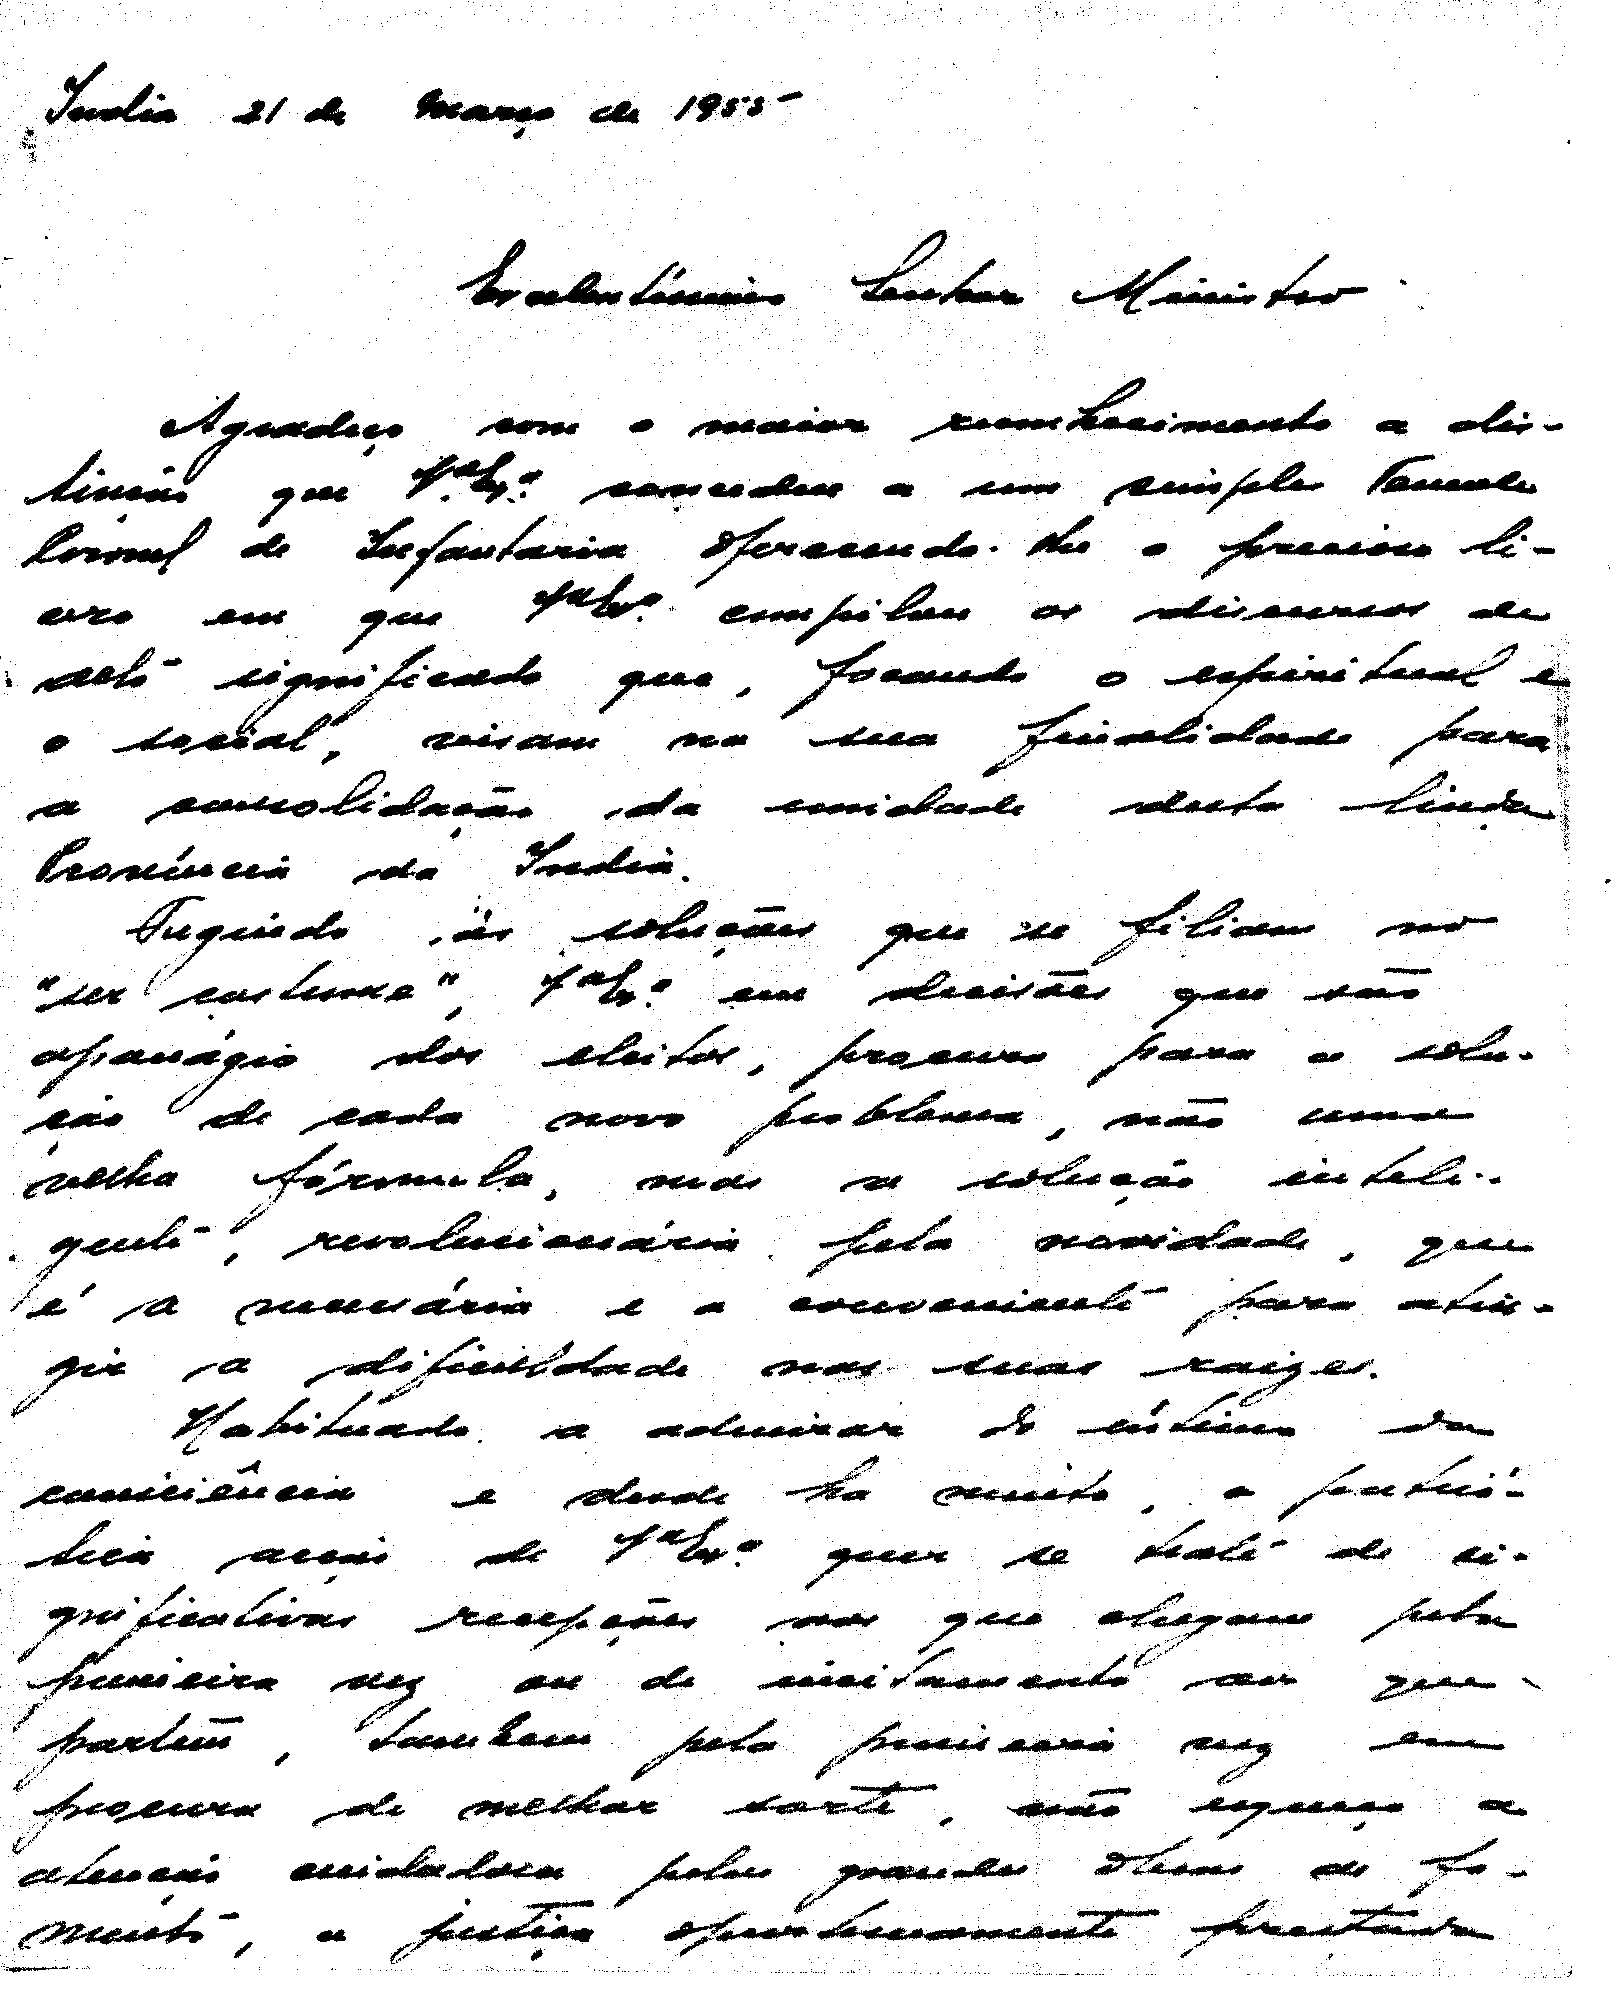 India 21 de Março de 1955
Excelentíssimo Senhor Ministro
Agradeço com o maior reconhecimento a dis-
tinção que Vª Exª concedeu a um simples Tenente
Coronel de Infantaria oferecendo-lhe o precioso li-
vro em que Vª Exª compilou os discursos de
alto significado que, focando o espiritual e
o social, visam na sua finalidade para
a consolidação da unidade desta linda
Província da India.
Fugindo às soluções que se filiam no
"ser costume", Vª Exª em decisões que são
apanágio dos eleitos, procura para a solu-
ção de cada novo problema, não uma
velha fórmula, mas a solução inteli-
gente, revolucionária pela novidade, que
é a necessária e a conveniente para atin-
gir a dificuldade nas suas raizes.
Habituado a admirar do íntimo da
consciência e desde ha muito, a patrió-
tica acção de Vª Exª quer se trate de si-
gnificativas recepções aos que chegam pela
primeira vez ou de incitamento aos que
partem, tambem pela primeira vez em
procura de melhor sorte, não esqueço a
atenção cuidadosa pelas grandes obras de fo-
mento, a justiça oportunamente prestada